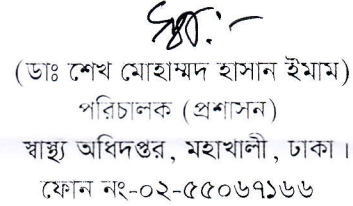 স্বাঃ-
(ডাঃ শেখ মোহাম্মদ হাসান ইমাম)
পরিচালক (প্রশাসন)
স্বাস্থ্য অধিদপ্তর, মহাখালী, ঢাকা।
ফোন নং-০২-৫৫০৬৭১৬৬